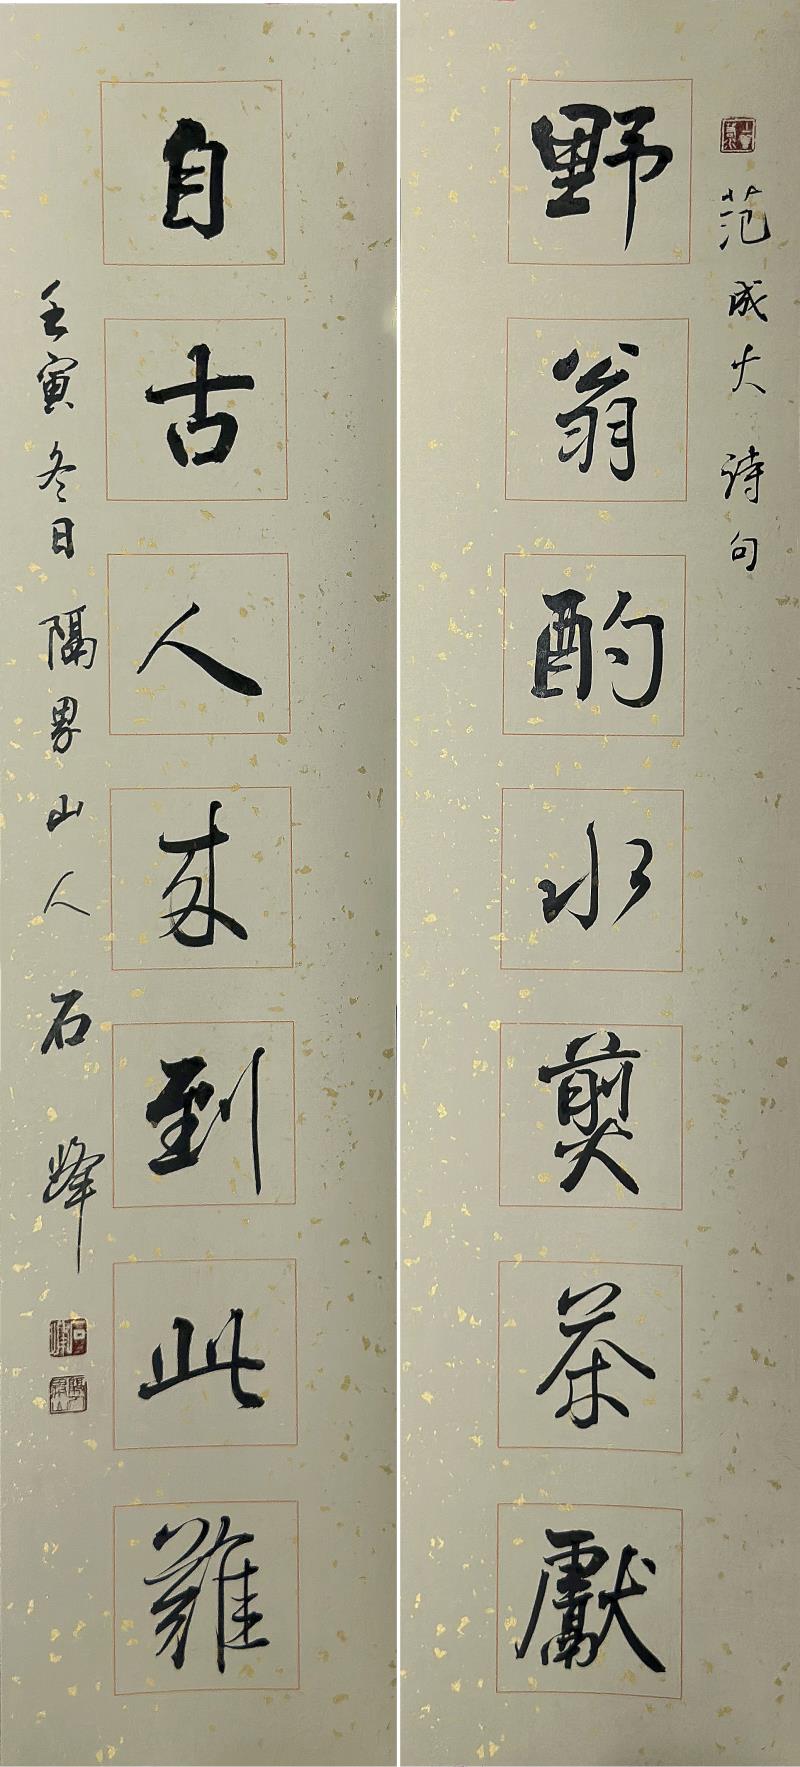 范成大诗句
野翁酌水煎茶獻
自古人来到此難
壬寅冬日隔界山人石峰